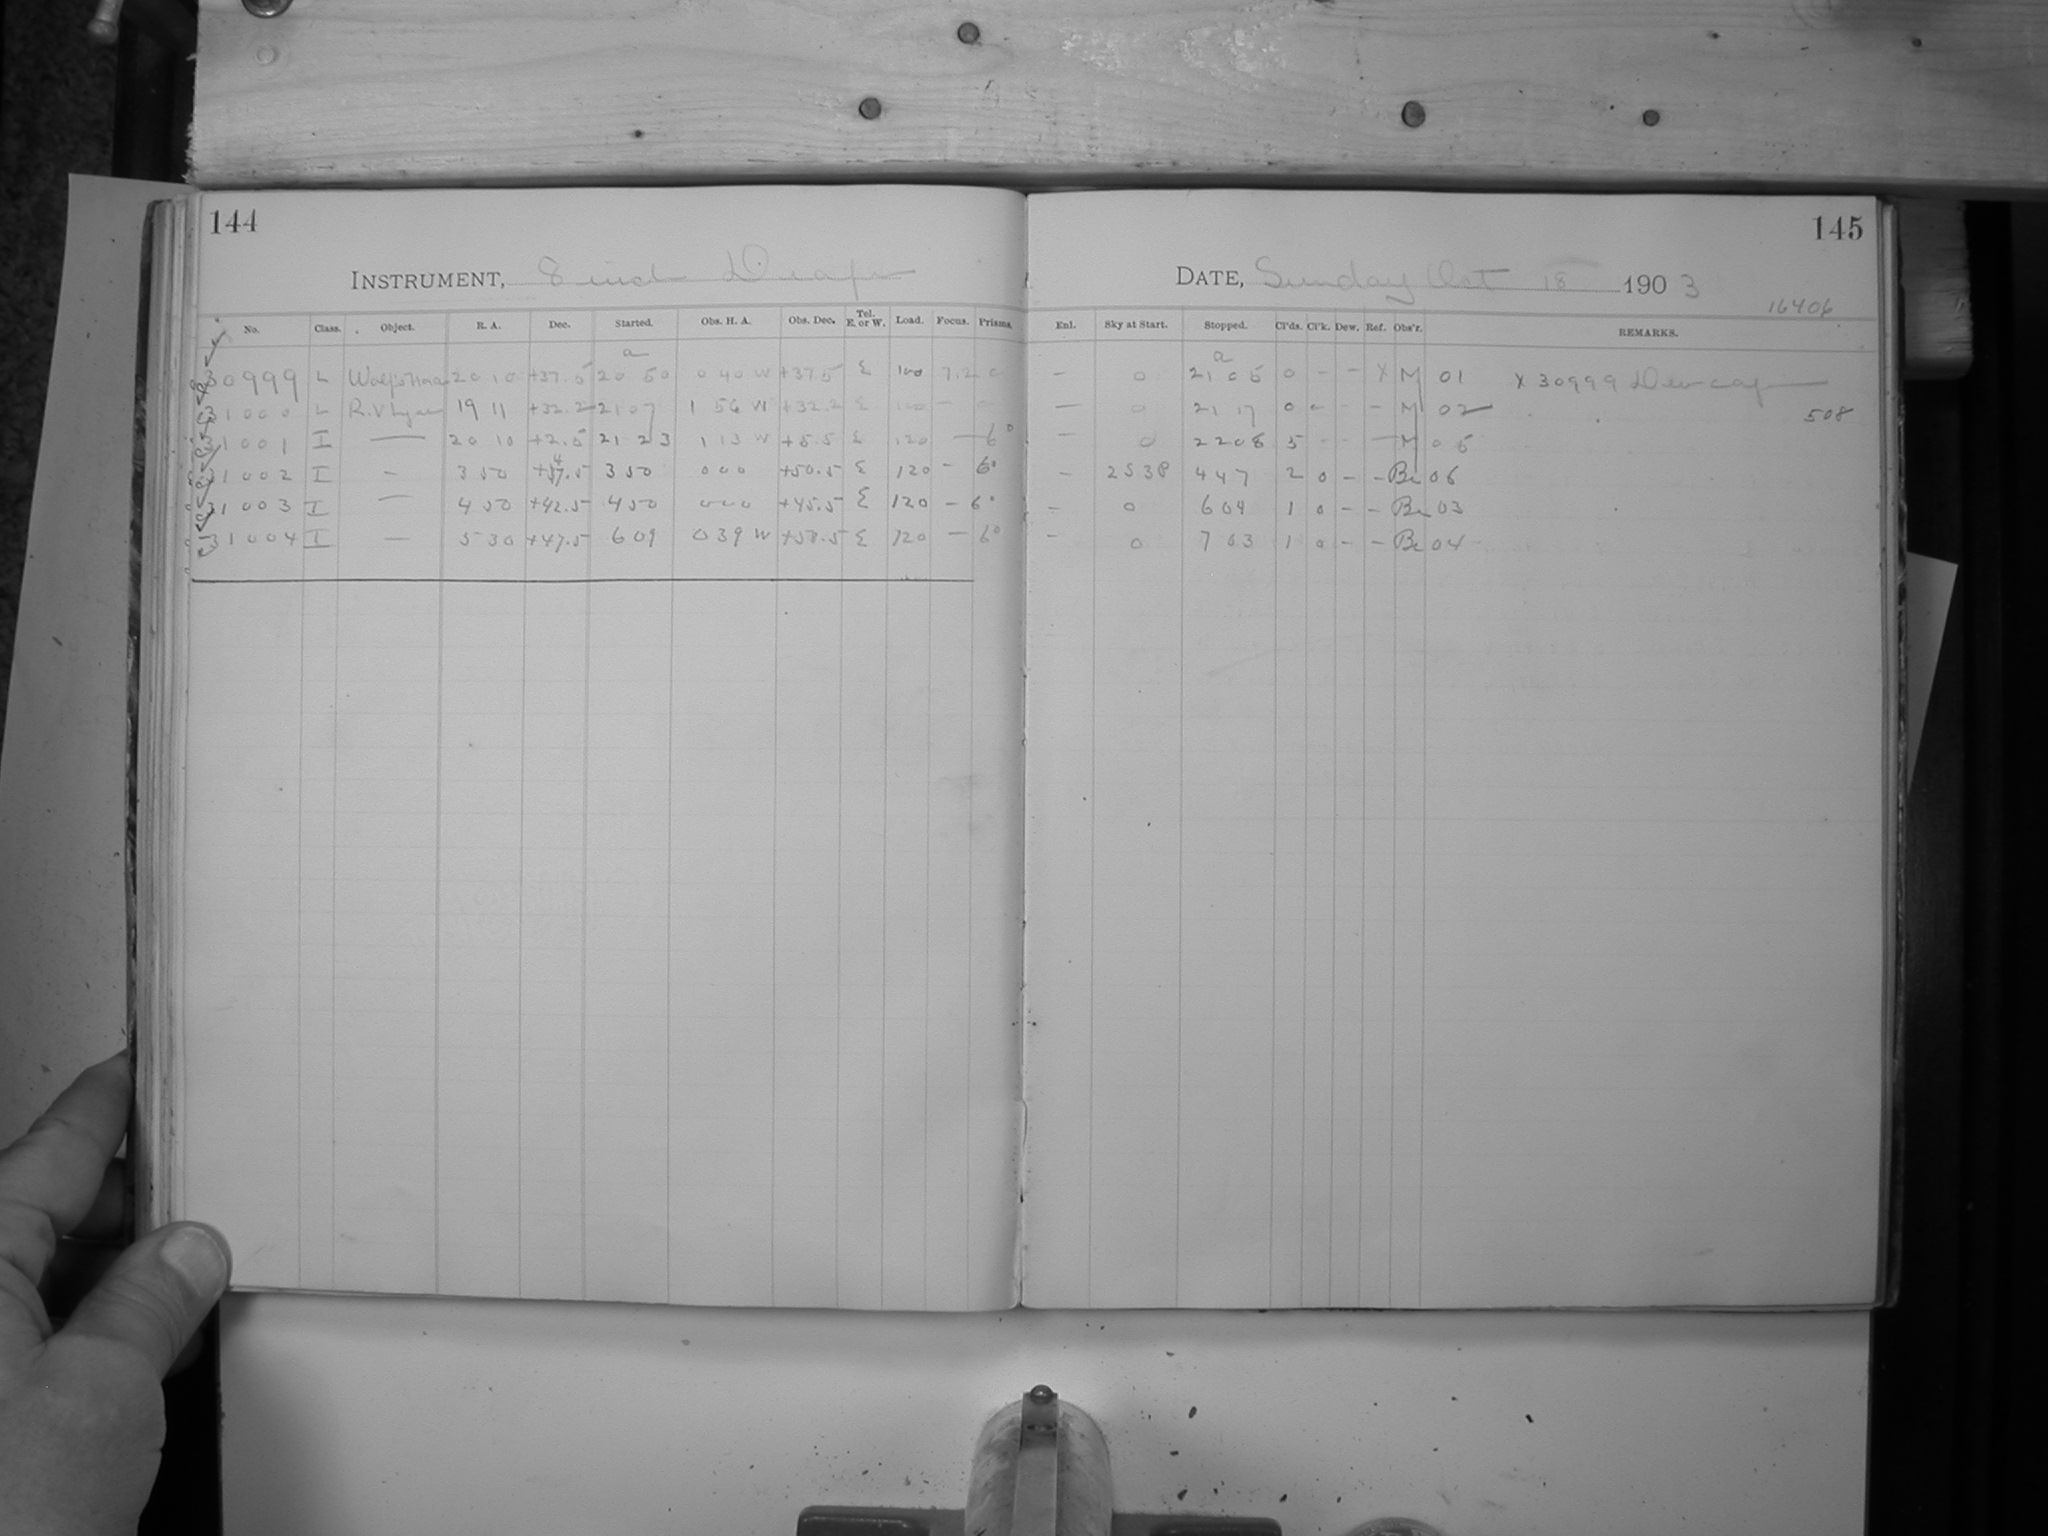 144
INSTRUMENT, 8 inch Draper
No. Class. Object. R. A. Dec. Started. Obs. H. A. Obs. Dec. Tel. E. or W. Load. Focus. Prisms.
a
30999 L 20 10 +37.5 20 50 0 40 W +37.5 E 100 7.2 0
31000 L R.V Lyrae 19 11 +32.2 21 07 1 56 W +32.2 E 100 — —
31001 I — 20 10 +2.5 21 23 1 13 W +5.5 E 120 — 6°
31002 I — 3 50 3 50 0 0 0 +50.5 E 120 - 6°
31003 I — 4 50 +42.5 4 50 0 0 0 +45.5 E 120 - 6°
31004 I — 5 30 +47.5 6 09 0 39 W +50.5 E 120 — 6°
145
DATE, Sunday Oct 18 1903
16406
Enl. Sky at Start. Stopped. Cl'ds. Cl'k. Dew. Ref. Obs'r. REMARKS.
a
— 0 21 05 0 - - X M 01 X 30999 Dew cap
— 0 21 17 0 - - - M 02
508
— 0 22 08 5 - - — M 05
— 2538 4 47 2 0 - - Be 06
- 0 6 04 1 0 - - Be 03
- 0 7 03 1 0 - - Be 04